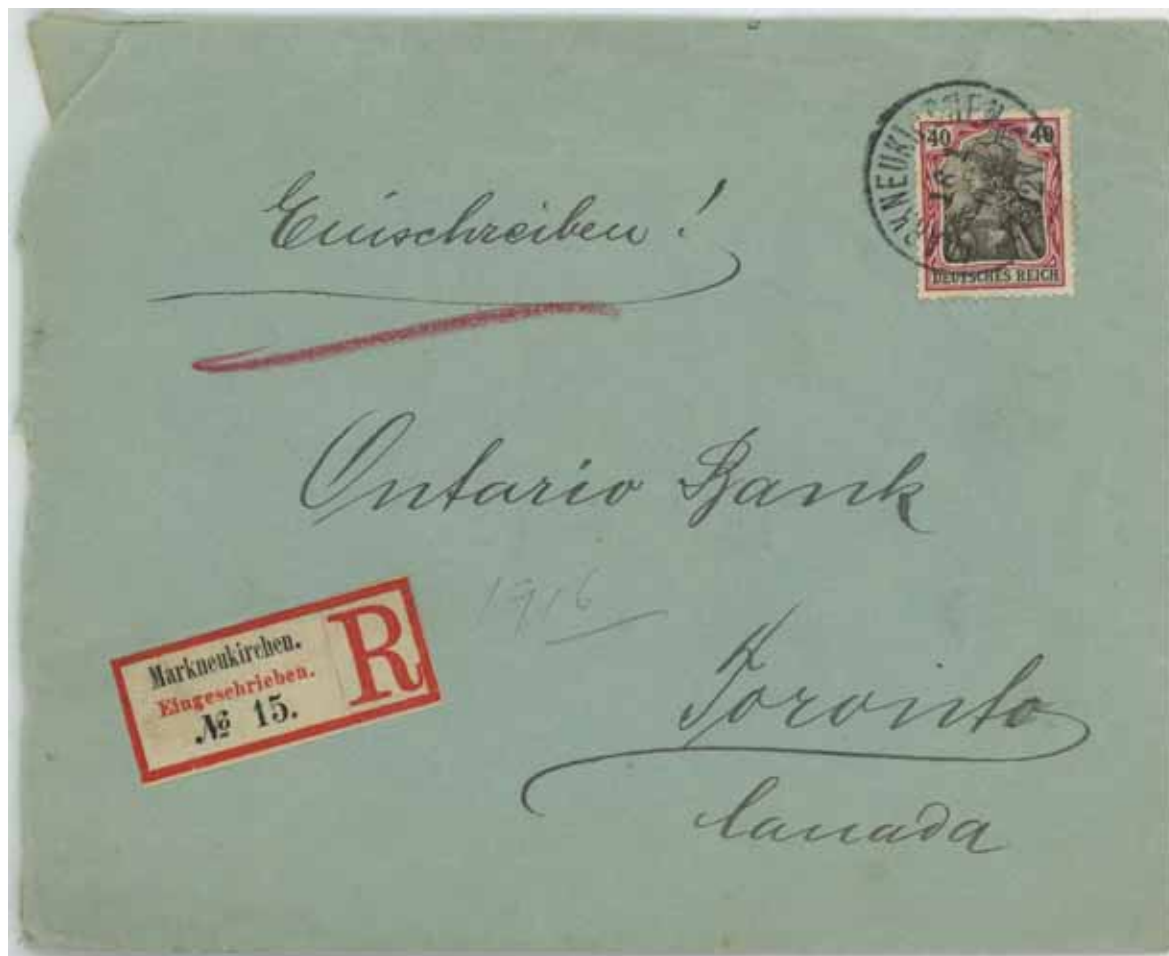 40 40
DEUTSCHES REICH
Einschreiben!
Ontario Bank
Markneukirchen.
Eingeschrieben.
№ 15.
R
Toronto
Canada